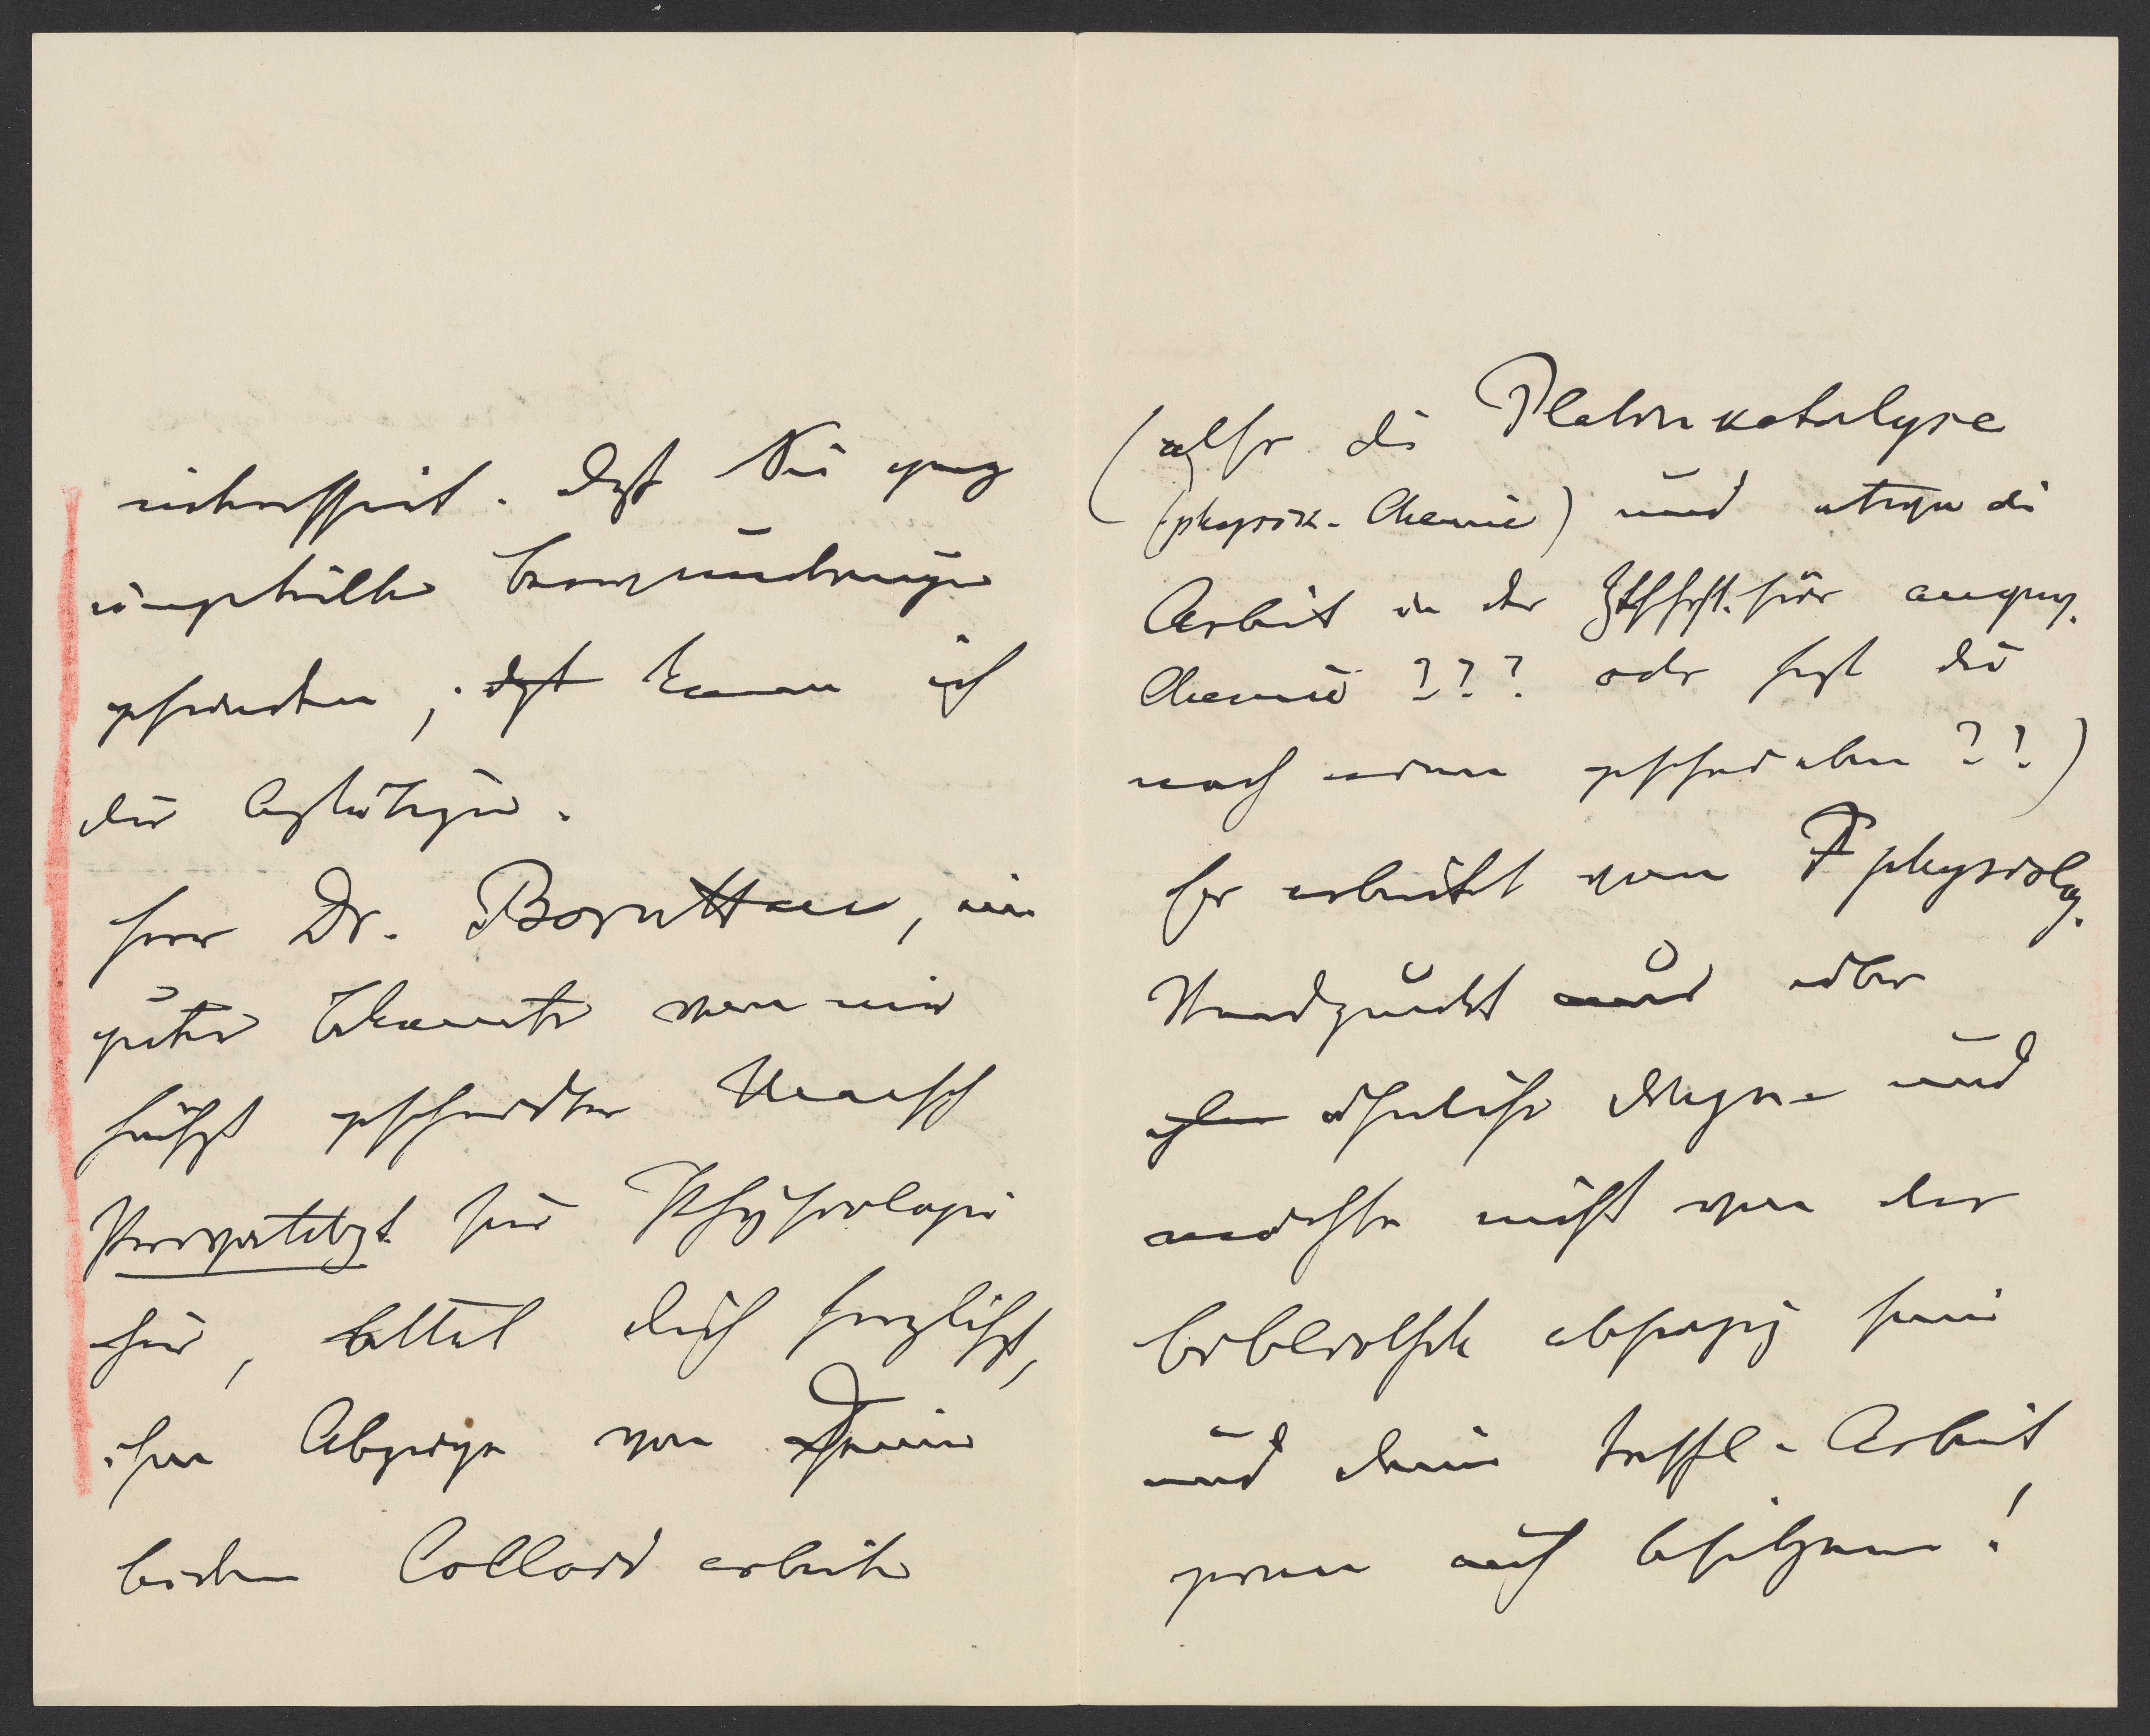 interessirt. Daß Sie ganz
ungetheilte Bewunderung
gefunden, daß kann ich
dir bestätigen.
Herr Dr. Boruttau, ein
guter Bekannter von mir
höchst gescheidter Mensch
Privatdzt. für Physiologie
hier, bettelt dich herzlichst,
ihm Abzüge von Deinen
beiden Colloid arbeiten
(also die Platinkatalyse
(physik. Chemie) und die
Arbeit in der Ztschft. für angew.
Chemie ??? oder hast du
noch einen geschrieben ??)
Er arbeitet vom physiolog.
Standpunkt und über
ähnliche Dinge und
möchte nicht von der
Bibliothek abhängig sein
und deine treffl. Arbeit
gern auch besitzen!